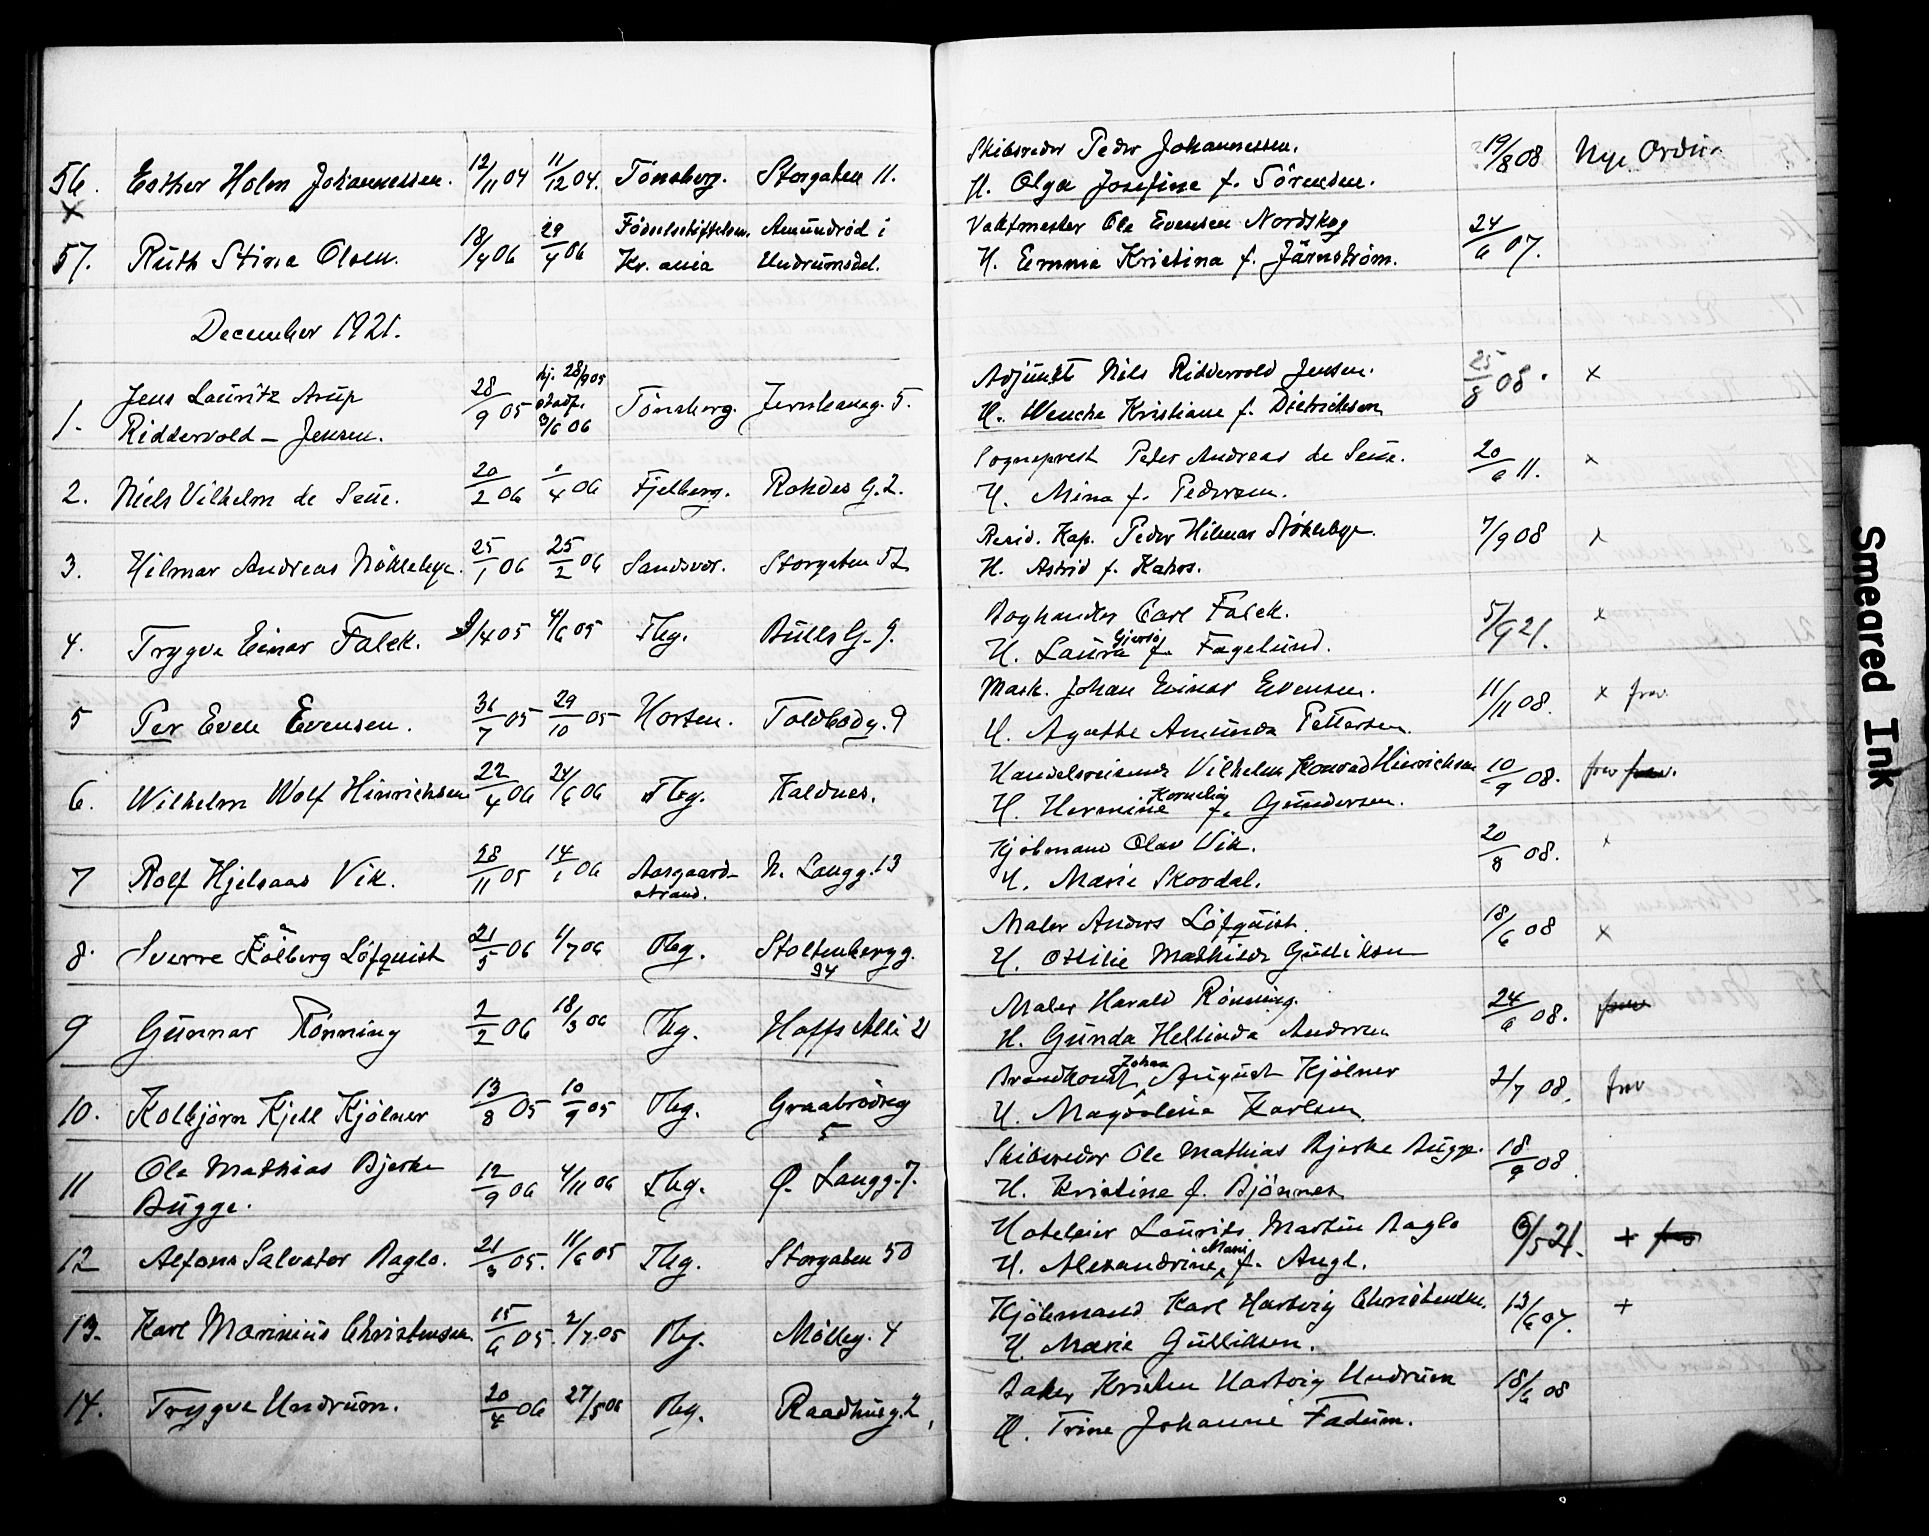 56. Esther Holm Johannessen. 12/11 04 11/12 04. Tönsberg. Storgaten 11. Skibsreder Peder Johannessen. 19/8 08 Nye
x H. Olga Josefine f. Sörensen.
57. Ruth Stina Olsen. 18/4 06 29/4 06 Födselsstiftelsen, Amundröd i Vaktmester Ole Evensen Nordskog 24/6 07.
Kr.ania Undrumsdal. H. Emma Kristina f. Järnström.
December 1921.
1. Jens Lauritz Arup 28/9 05 hj. 28/9 05 Tönsberg. Jernbaneg. 5. Adjunkt Nils Riddervold Jensen. 25/8 08. x
Riddervold-Jensen. stadf. 8/6 06 H. Wenche Kristiane f. Dietrichson
2. Niels Vilhelm de Seue. 20/2 06 1/4 06 Fjelberg. Rohdes G. 2. Sogneprest Peter Andreas de Seue. 20/6 11. x
H. Mina f. Pedersen.
3. Hilmar Andreas Nöklebye. 25/1 06 25/2 06 Sandsvær. Storgaten 52 Resid. Kap. Peder Hilmar Nöklebye. 7/9 08 x
H. Astrid f. Kahrs.
4. Trygve Einar Falck. 9/4 05 4/6 05 Tbg. Bulls G. 9. Boghandler Carl Falck. 5/9 21. x
H. Laura Gjersö f. Fagelund.
5 Per Even Evensen. 31/7 05 29/10 05 Horten. Toldbodg. 9 Mask. Johan Einar Evensen. 11/11 08. x frav.
H. Agathe Amunda Pettersen.
6. Wilhelm Wolf Hinrichsen 22/4 06 24/6 06 Tbg. Kaldnes. Handelsreisende Vilhelm Konrad Hinrichsen 10/9 08. frav frav.
H. Hermine Kornelia f. Gundersen.
7 Rolf Hjelsaas Vik. 28/11 05 14/1 06 Aasgaard- N. Langg. 13 Kjöbmann Olav Vik. 20/8 08. x
strand. H. Marie Skovdal.
8. Sverre Kölberg Löfquist 21/5 06 1/7 06 Tbg. Stoltenbergg. Maler Anders Löfquist. 18/6 08 x
34 H. Ottilie Mathilde Gulliksen
9 Gunnar Rönning 2/2 06 18/3 06 Tbg. Hoffs Allé 21 Maler Harald Rönning. 24/6 08. frav
H. Gunda Hellinda Andersen
10. Kolbjörn Kjell Kjölner 13/8 05 10/9 05 Tbg. Graabrödreg Brandkonst. Johan August Kjölner 2/7 08. frav
5 H. Magdalena Karlsen
11 Ole Mathias Bjerke 12/9 06 4/11 06 Tbg. Ø. Langg. 7. Skibsreder Ole Mathias Bjerke Bugge. 18/9 08
Bugge. H. Kristine f. Bjönnes
12 Alfons Salvator Baglo. 21/3 05. 11/6 05 Tbg. Storgaten 50 Hoteleier Laurits Martin Baglo 6/5 21. + frav
H. Alexandrine Marie f. Angl.
13. Karl Marinius Christensen. 15/6 05. 2/7 05 Tbg. Mölleg. 4 Kjöbmand Karl Hartvig Christensen. 13/6 07. +
H. Marie Gulliksen.
14. Trygve Undrum. 20/4 06 27/5 06 Tbg. Raadhusg. 2, Baker Kristen Hartvig Undrum 18/6 08
H. Trine Johanne Fadum.
Smeared Ink